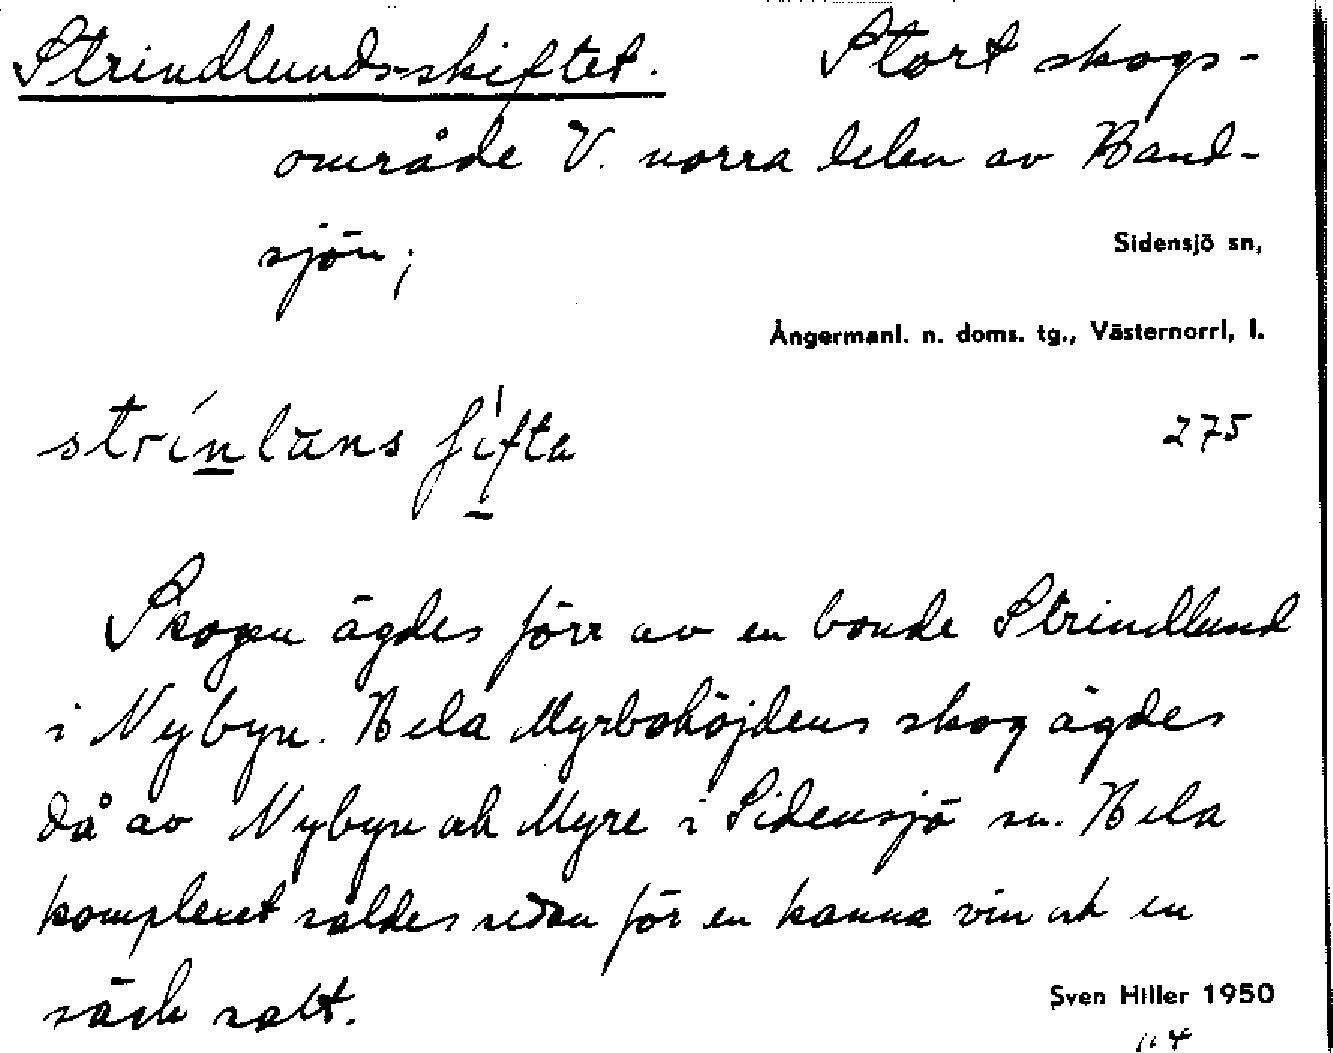 Strindlundsskiftet. Stort skogs-
område V. norra delen av Hand-
sjön;
Sidensjö sn,
Ångermanl. n. doms. tg., Västernorrl, l.
strínlūns ʃifta
275
Skogen ägdes förr av en bonde Strindlund
i Nybyn. Hela Myrbohöjdens skog ägdes
då av Nybyn och Myre i Sidensjö sn. Hela
komplexet såldes sedan för en kanna vin och en
säck salt.
Sven Hiller 1950